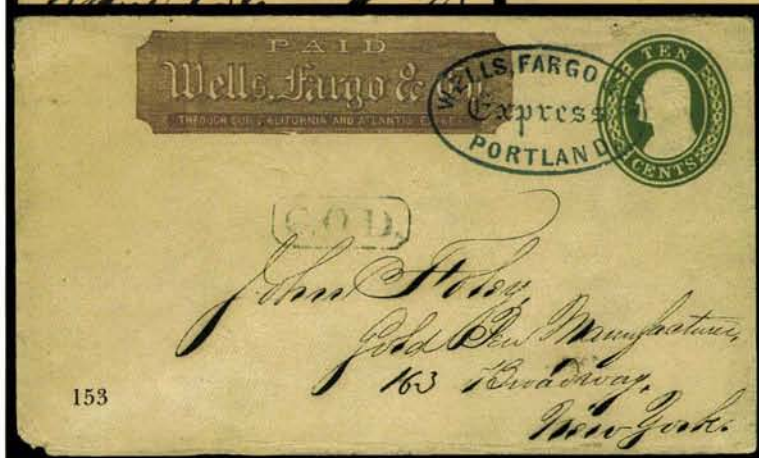 PAID
Wells, Fargo & Co.
THROUGH OUR CALIFORNIA AND ATLANTIC EXPRESS
WELLS, FARGO
Express
PORTLAND
TEN
CENTS
C.O.D.
John Foley,
Gold Pen Manufacturer,
163 Broadway,
New York.
153